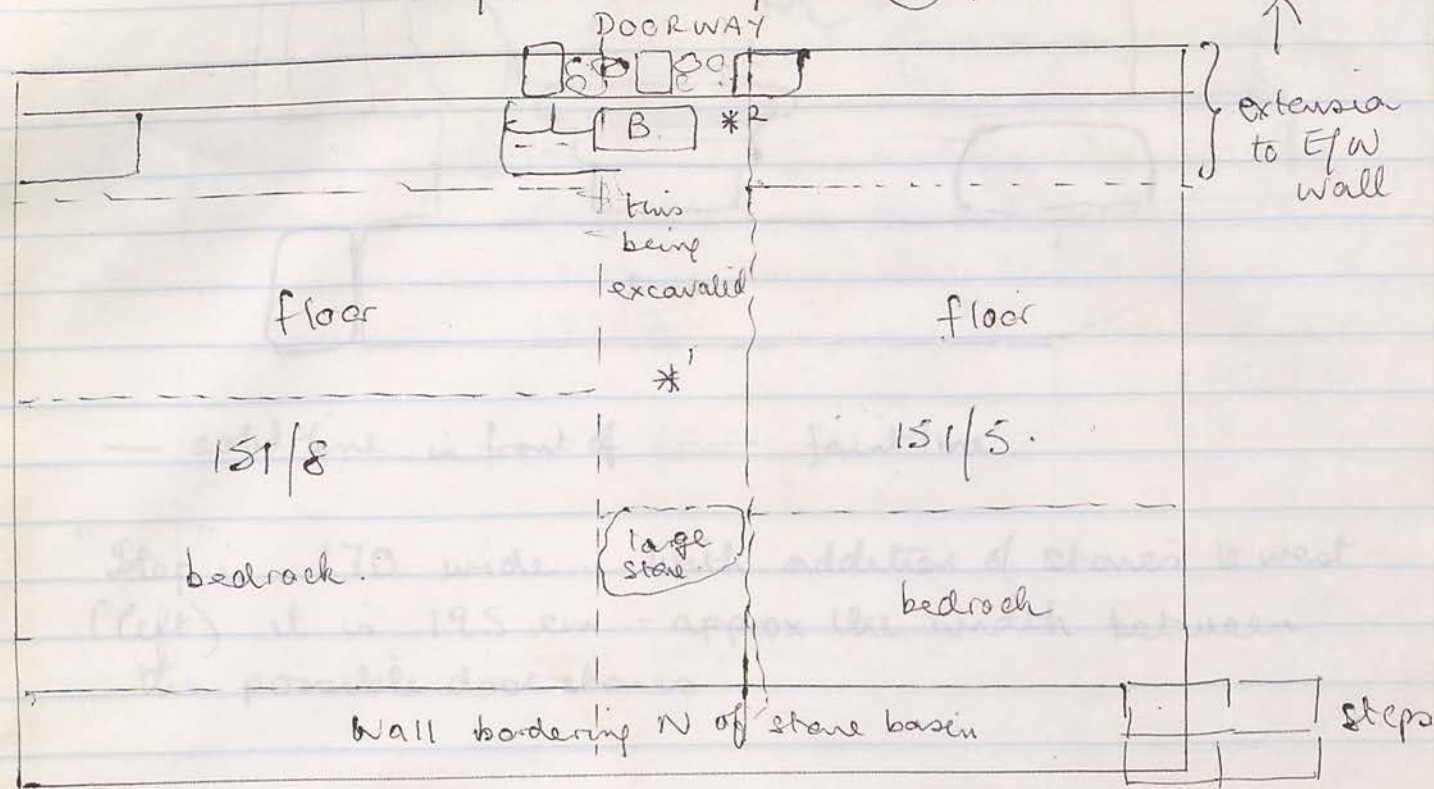 DOORWAY
extension
to E/W
wall
B.
*2
this
being
excavated
floor
floor
*1
151/8
151/5.
large
stone
bedrock.
bedrock
Wall bordering N of stone basin
steps